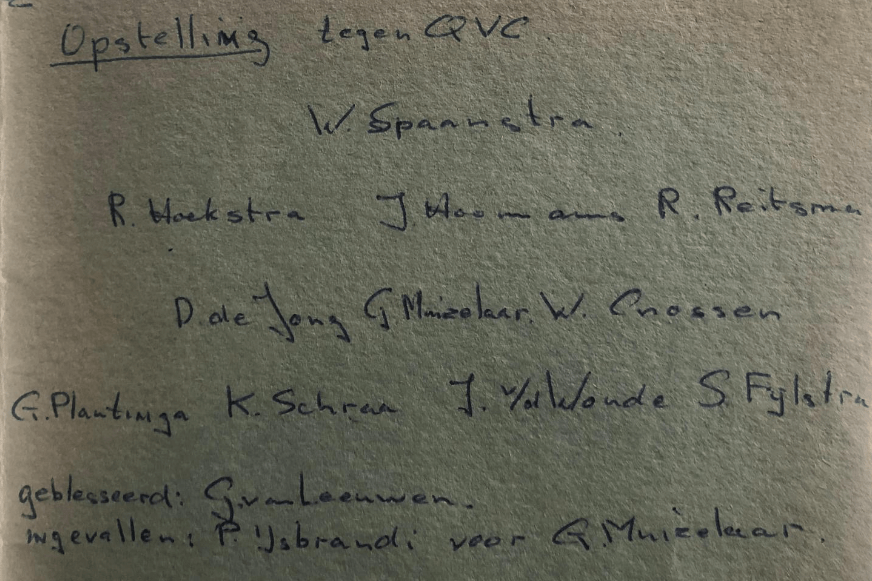 Opstelling tegen QVC.
W. Spaanstra.
R. Hoekstra J. Hoomans R. Reitsma
D. de Jong G. Muizelaar. W. Cnossen
G. Plantinga K. Schraa J. v/d Woude S. Fylstra
geblesseerd: G. van Leeuwen.
ingevallen: P. IJsbrandi voor G. Muizelaar.